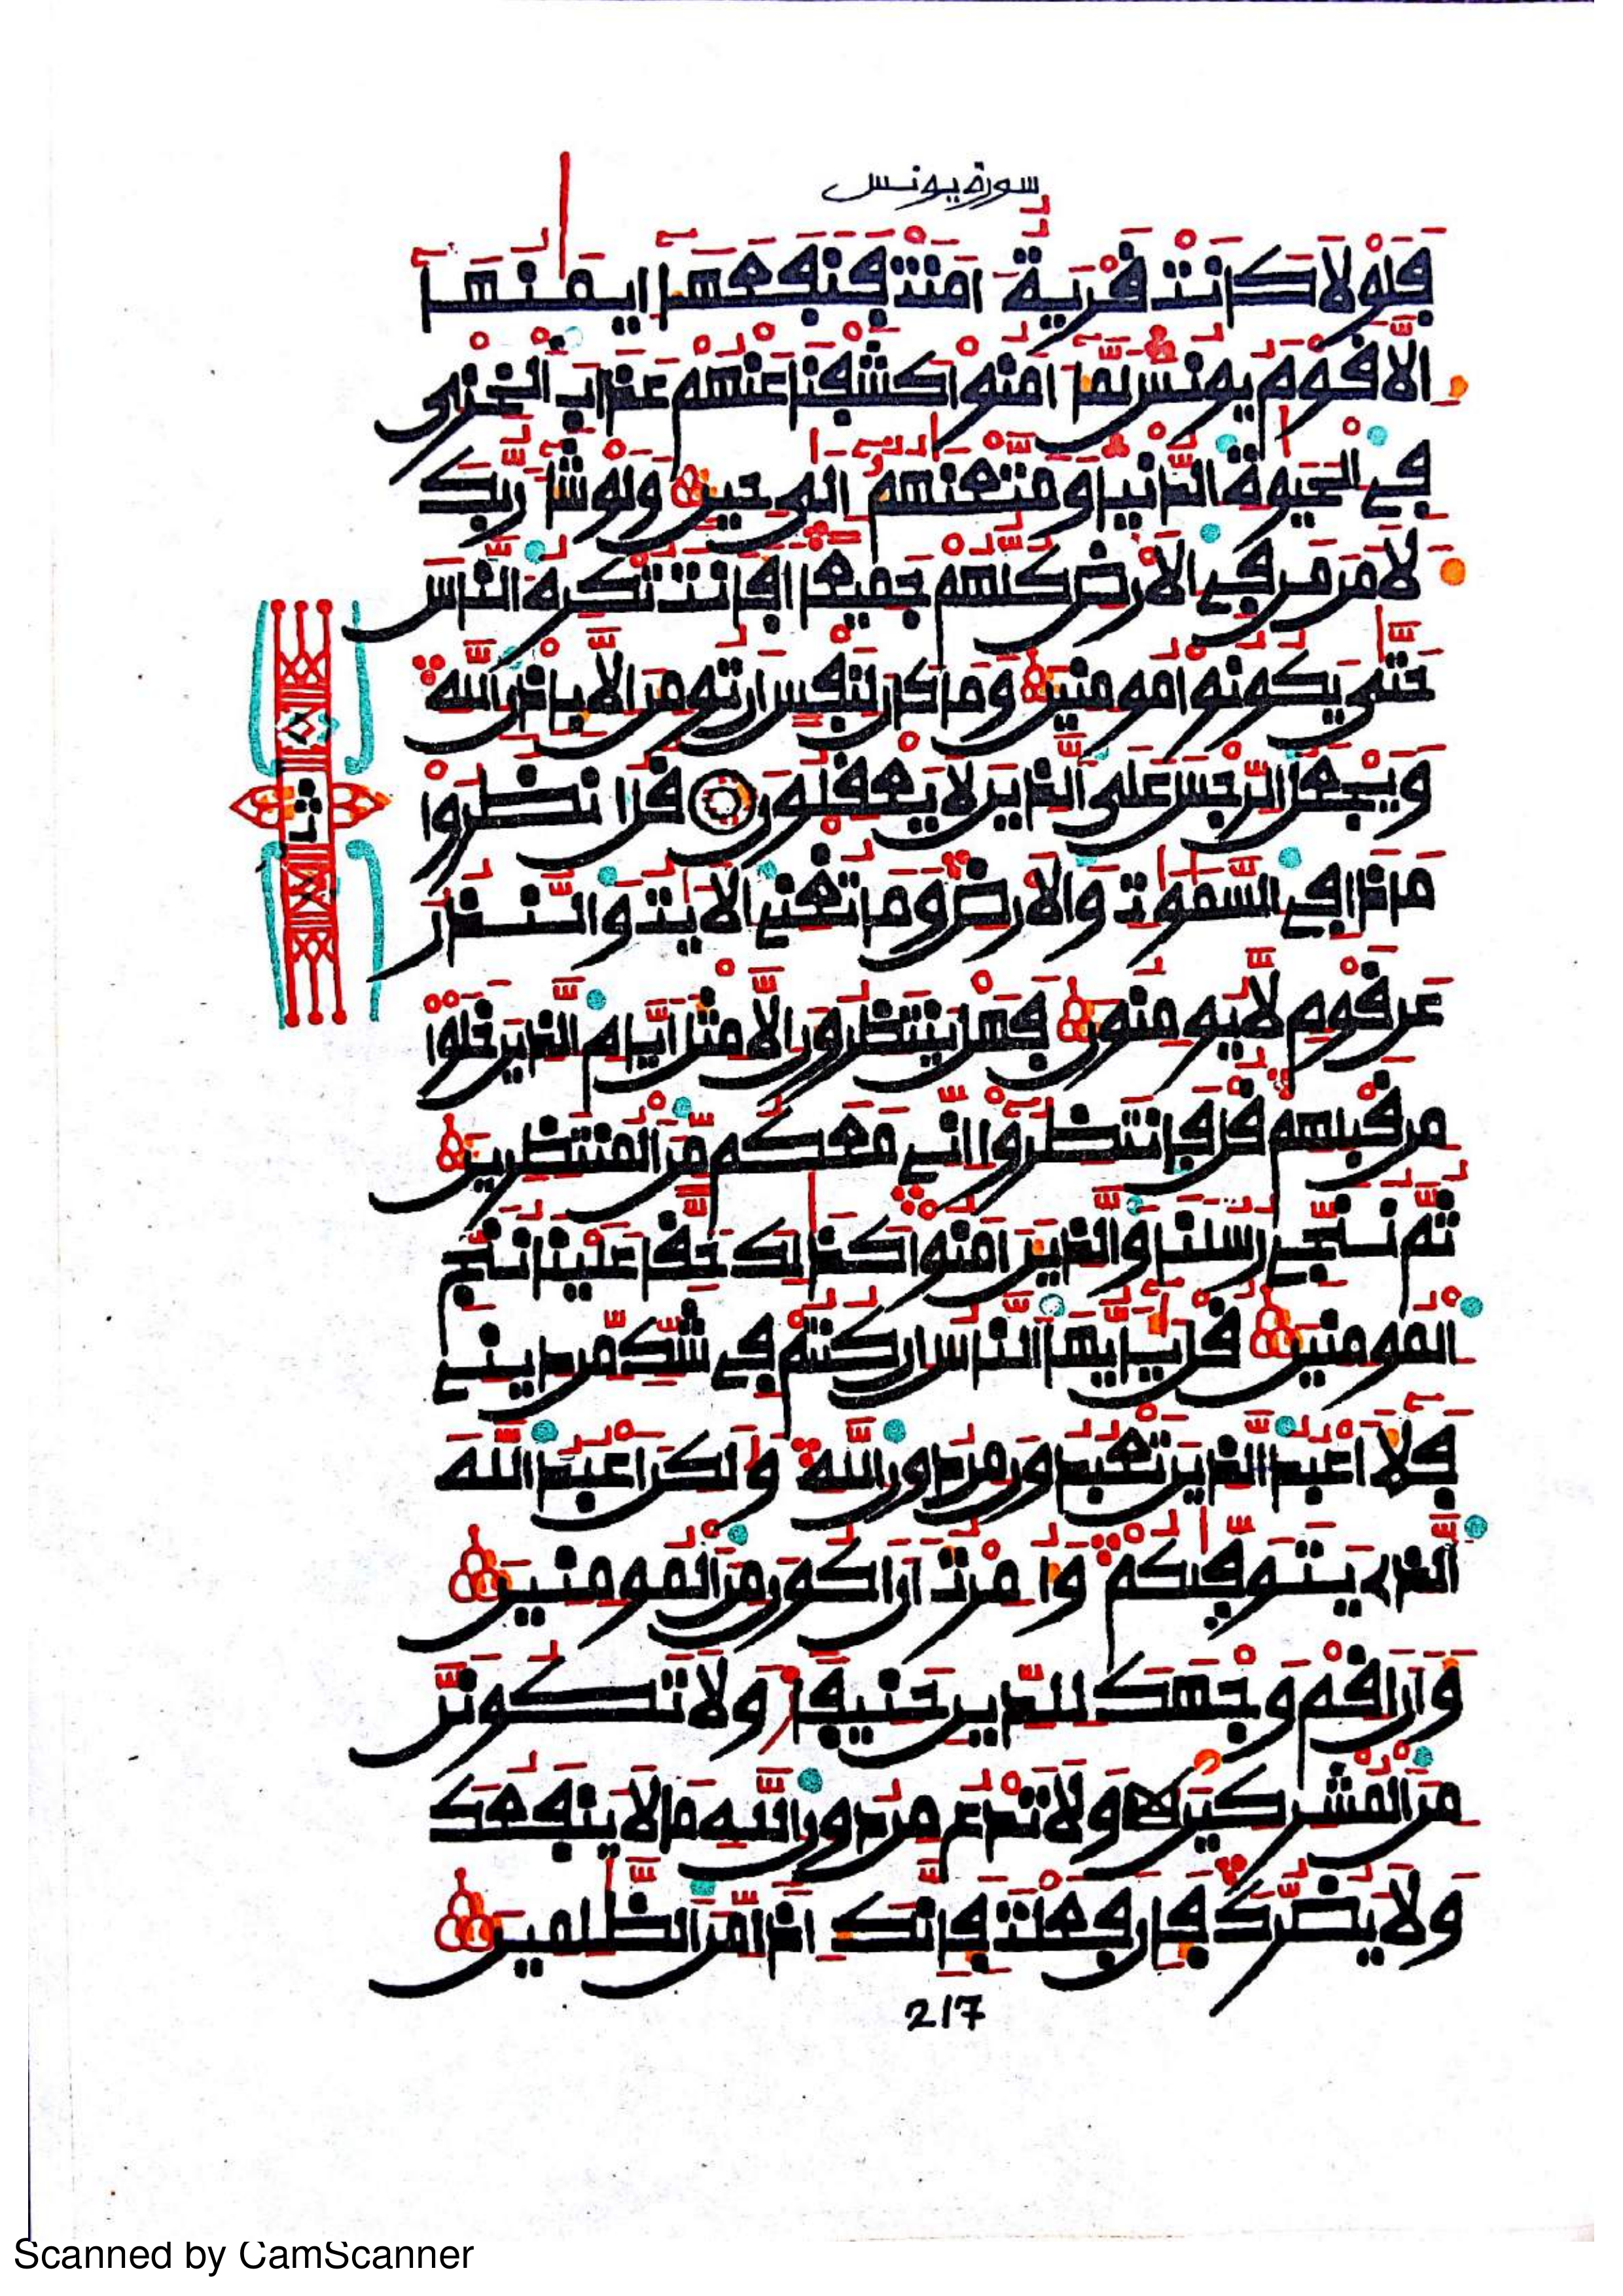 سورة يونس
فَلَوْلَا كَانَتْ قَرْيَةٌ امَنَتْ فَنَفَعَهَآ إِيمَٰنُهَآ
إِلَّا قَوْمَ يُونُسَ لَمَّآ ءَامَنُواْ كَشَفْنَا عَنْهُمْ عَذَابَ اَلْخِزْيِ
فِي اِلْحَيَوٰةِ اِلدُّنْيَا وَمَتَّعْنَٰهُمُۥٓ إِلَىٰ حِينٍ وَلَوْ شَآءَ رَبُّكَ
لَأَمَنَ مَن فِي اِلْأَرْضِ كُلُّهُمْ جَمِيعًا أَفَأَنتَ تُكْرِهُ اُلنَّاسَ
حَتَّىٰ يَكُونُواْ مُومِنِينَ وَمَا كَانَ لِنَفْسٍ أَن تُومِنَ إِلَّا بِإِذْنِ اِللَّهِ
وَيَجْعَلُ اُلرِّجْسَ عَلَى اَلَّذِينَ لَا يَعْقِلُونَ قُلُ اُنظُرُواْ
مَاذَا فِي اِلسَّمَٰوَٰتِ وَالْأَرْضِ وَمَا تُغْنِي اِلْأَيَٰتُ وَالنُّذُرُ
عَن قَوْمٍ لَّا يُومِنُونَ فَهَلْ يَنتَظِرُونَ إِلَّا مِثْلَ أَيَّامِ اِلَّذِينَ خَلَوْاْ
مِن قَبْلِهِمْ قُلْ فَانتَظِرُوٓاْ إِنِّي مَعَكُم مِّنَ اَلْمُنتَظِرِينَ
ثُمَّ نُنَجِّي رُسُلَنَا وَالَّذِينَ ءَامَنُواْ كَذَٰلِكَ حَقًّا عَلَيْنَا نُنَجِّ
اِلْمُومِنِينَ قُلْ يَٰٓأَيُّهَا اَلنَّاسُ إِن كُنتُمْ فِي شَكٍّ مِّن دِينِي
فَلَآ أَعْبُدُ اُلَّذِينَ تَعْبُدُونَ مِن دُونِ اِللَّهِ وَلَٰكِنَ اَعْبُدُ اُللَّهَ
اَلَّذِي يَتَوَفَّيٰكُمْ وَأُمِرْتُ أَنَ اَكُونَ مِنَ اَلْمُومِنِينَ
وَأَنَ اَقِمْ وَجْهَكَ لِلدِّينِ حَنِيفًا وَلَا تَكُونَنَّ
مِنَ اَلْمُشْرِكِينَ وَلَا تَدْعُ مِن دُونِ اِللَّهِ مَا لَا يَنفَعُكَ
وَلَا يَضُرُّكَ فَإِن فَعَلْتَ فَإِنَّكَ إِذًا مِّنَ اَلظَّٰلِمِينَ
217
Scanned by CamScanner